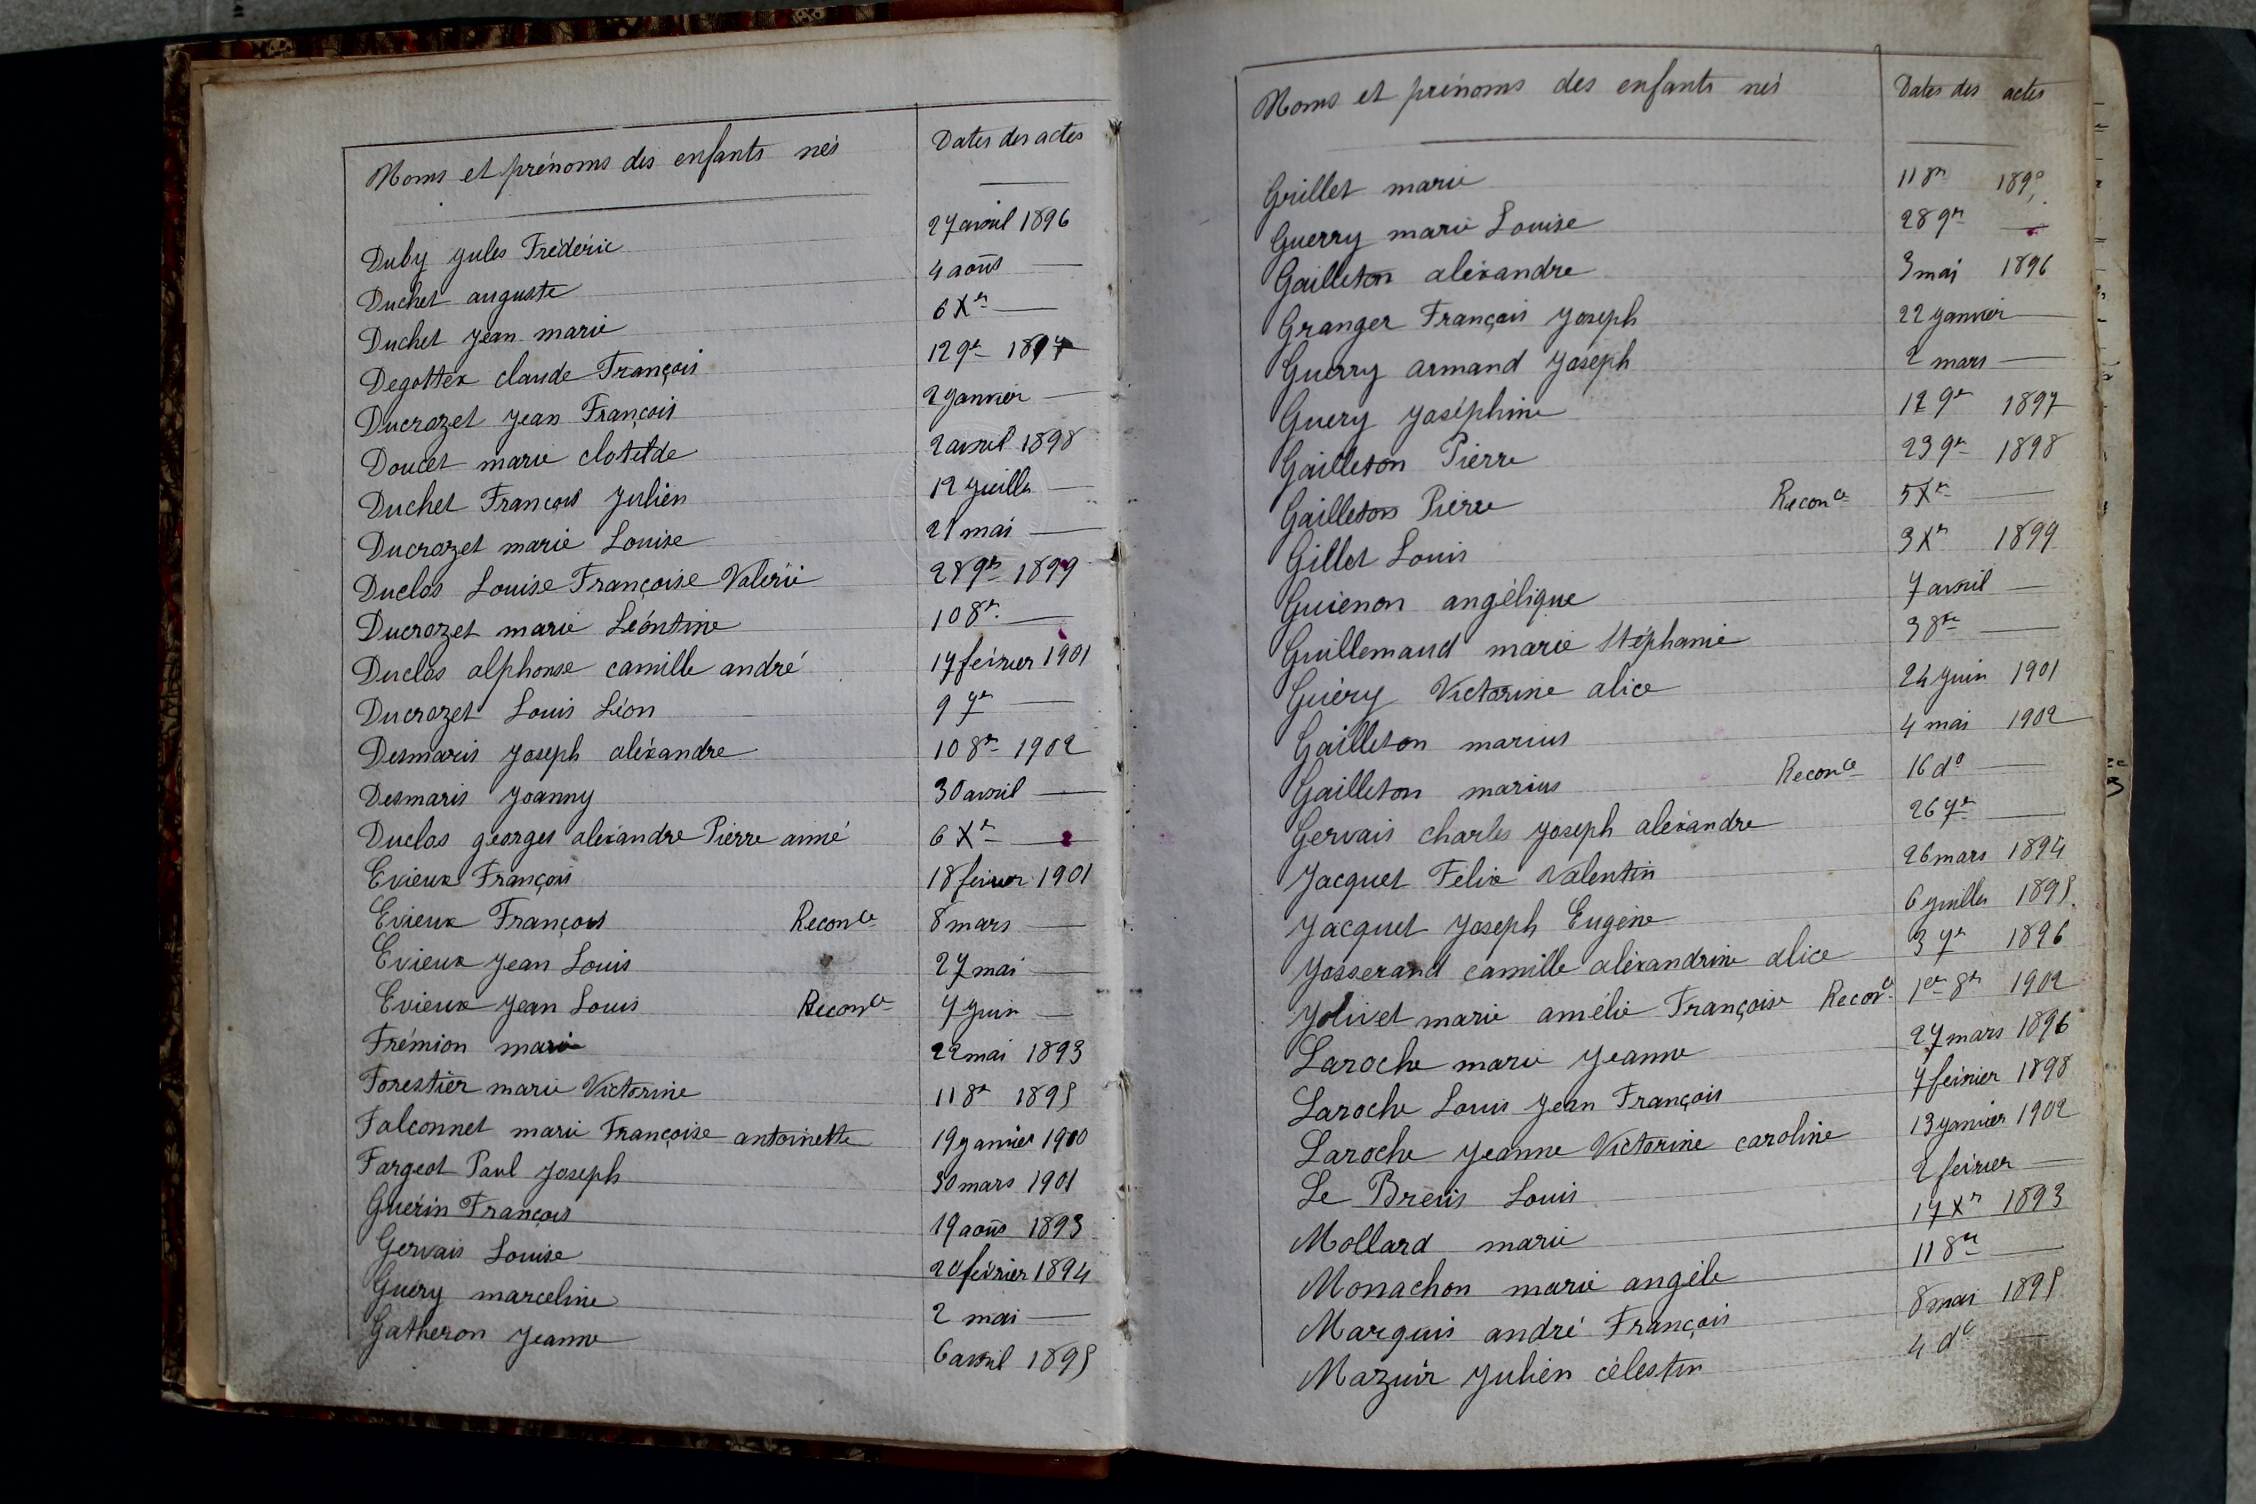 Noms et prénoms des enfants nés Dates des actes
Duby Jules Frédéric 27 avril 1896
Duchet auguste 4 août —
Duchet Jean marie 6 Xre —
Degottex claude François 12 9re 1897
Ducrozet Jean François 2 Janvier —
Doucet marie clotilde 2 avril 1898
Duchet François Julien 12 Juillet —
Ducrozet marie Louise 21 mai —
Duclos Louise Françoise Valérie 28 9re 1899
Ducrozet marie Léontine 10 8re —
Duclos alphonse camille andré 17 février 1901
Ducrozet Louis Léon 9 7re —
Desmaris Joseph aléxandre 10 8re 1902
Desmaris Joanny 30 avril —
Duclos georges aléxandre Pierre aimé 6 Xre —
Evieux François 18 février 1901
Evieux François Reconce 8 mars —
Evieux Jean Louis 27 mai —
Evieux Jean Louis Reconce 7 Juin —
Frémion marie 22 mai 1893
Forestier marie Victorine 11 8re 1895
Falconnet marie Françoise antoinette 19 Janvier 1900
Fargeot Paul Joseph 30 mars 1901
Guérin François 19 août 1893
Gervais Louise 20 février 1894
Guéry marceline 2 mai —
Gatheron Jeanne 6 avril 1895
Noms et prénoms des enfants nés Dates des actes
Grillet marie 11 8re
Guerry marie Louise 28 9re —
Gailleton aléxandre 3 mai 1896
Granger François Joseph 22 Janvier —
Guerry armand Joseph 2 mars —
Guery Joséphine 12 9re 1897
Gailleton Pierre 23 9re 1898
Gailleton Pierre Reconce 5 Xre —
Gillet Louis 3 Xre 1899
Guienon angélique 7 avril —
Guillemaud marie Stéphanie 3 8re —
Guéry Victorine alice 24 Juin 1901
Gailleton marius 4 mai 1902
Gailleton marius Reconce 16 do —
Gervais charles Joseph aléxandre 26 7re —
Jacquet Félix Valentin 26 mars 1894
Jacquet Joseph Eugène 6 Juillet 1895
Josserand camille aléxandrine alice 3 7re 1896
Jolivet marie amélie Françoise Reconce 1er 8re 1902
Laroche marie Jeanne 27 mars 1896
Laroche Louis Jean François 7 février 1898
Laroche Jeanne Victorine caroline 13 Janvier 1902
Le Breüs Louis 2 février —
Mollard marie 17 Xre 1893
Monachon marie angèle 11 8re —
Marquis andré François 8 mai 1895
Mazuir Julien célestin 4 do —